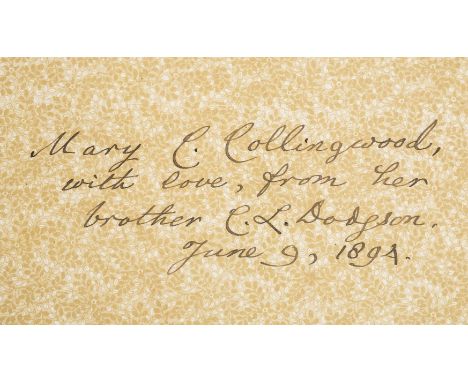 Mary C. Collingwood,
with love, from her
brother C. L. Dodgson.
June 9, 1894.